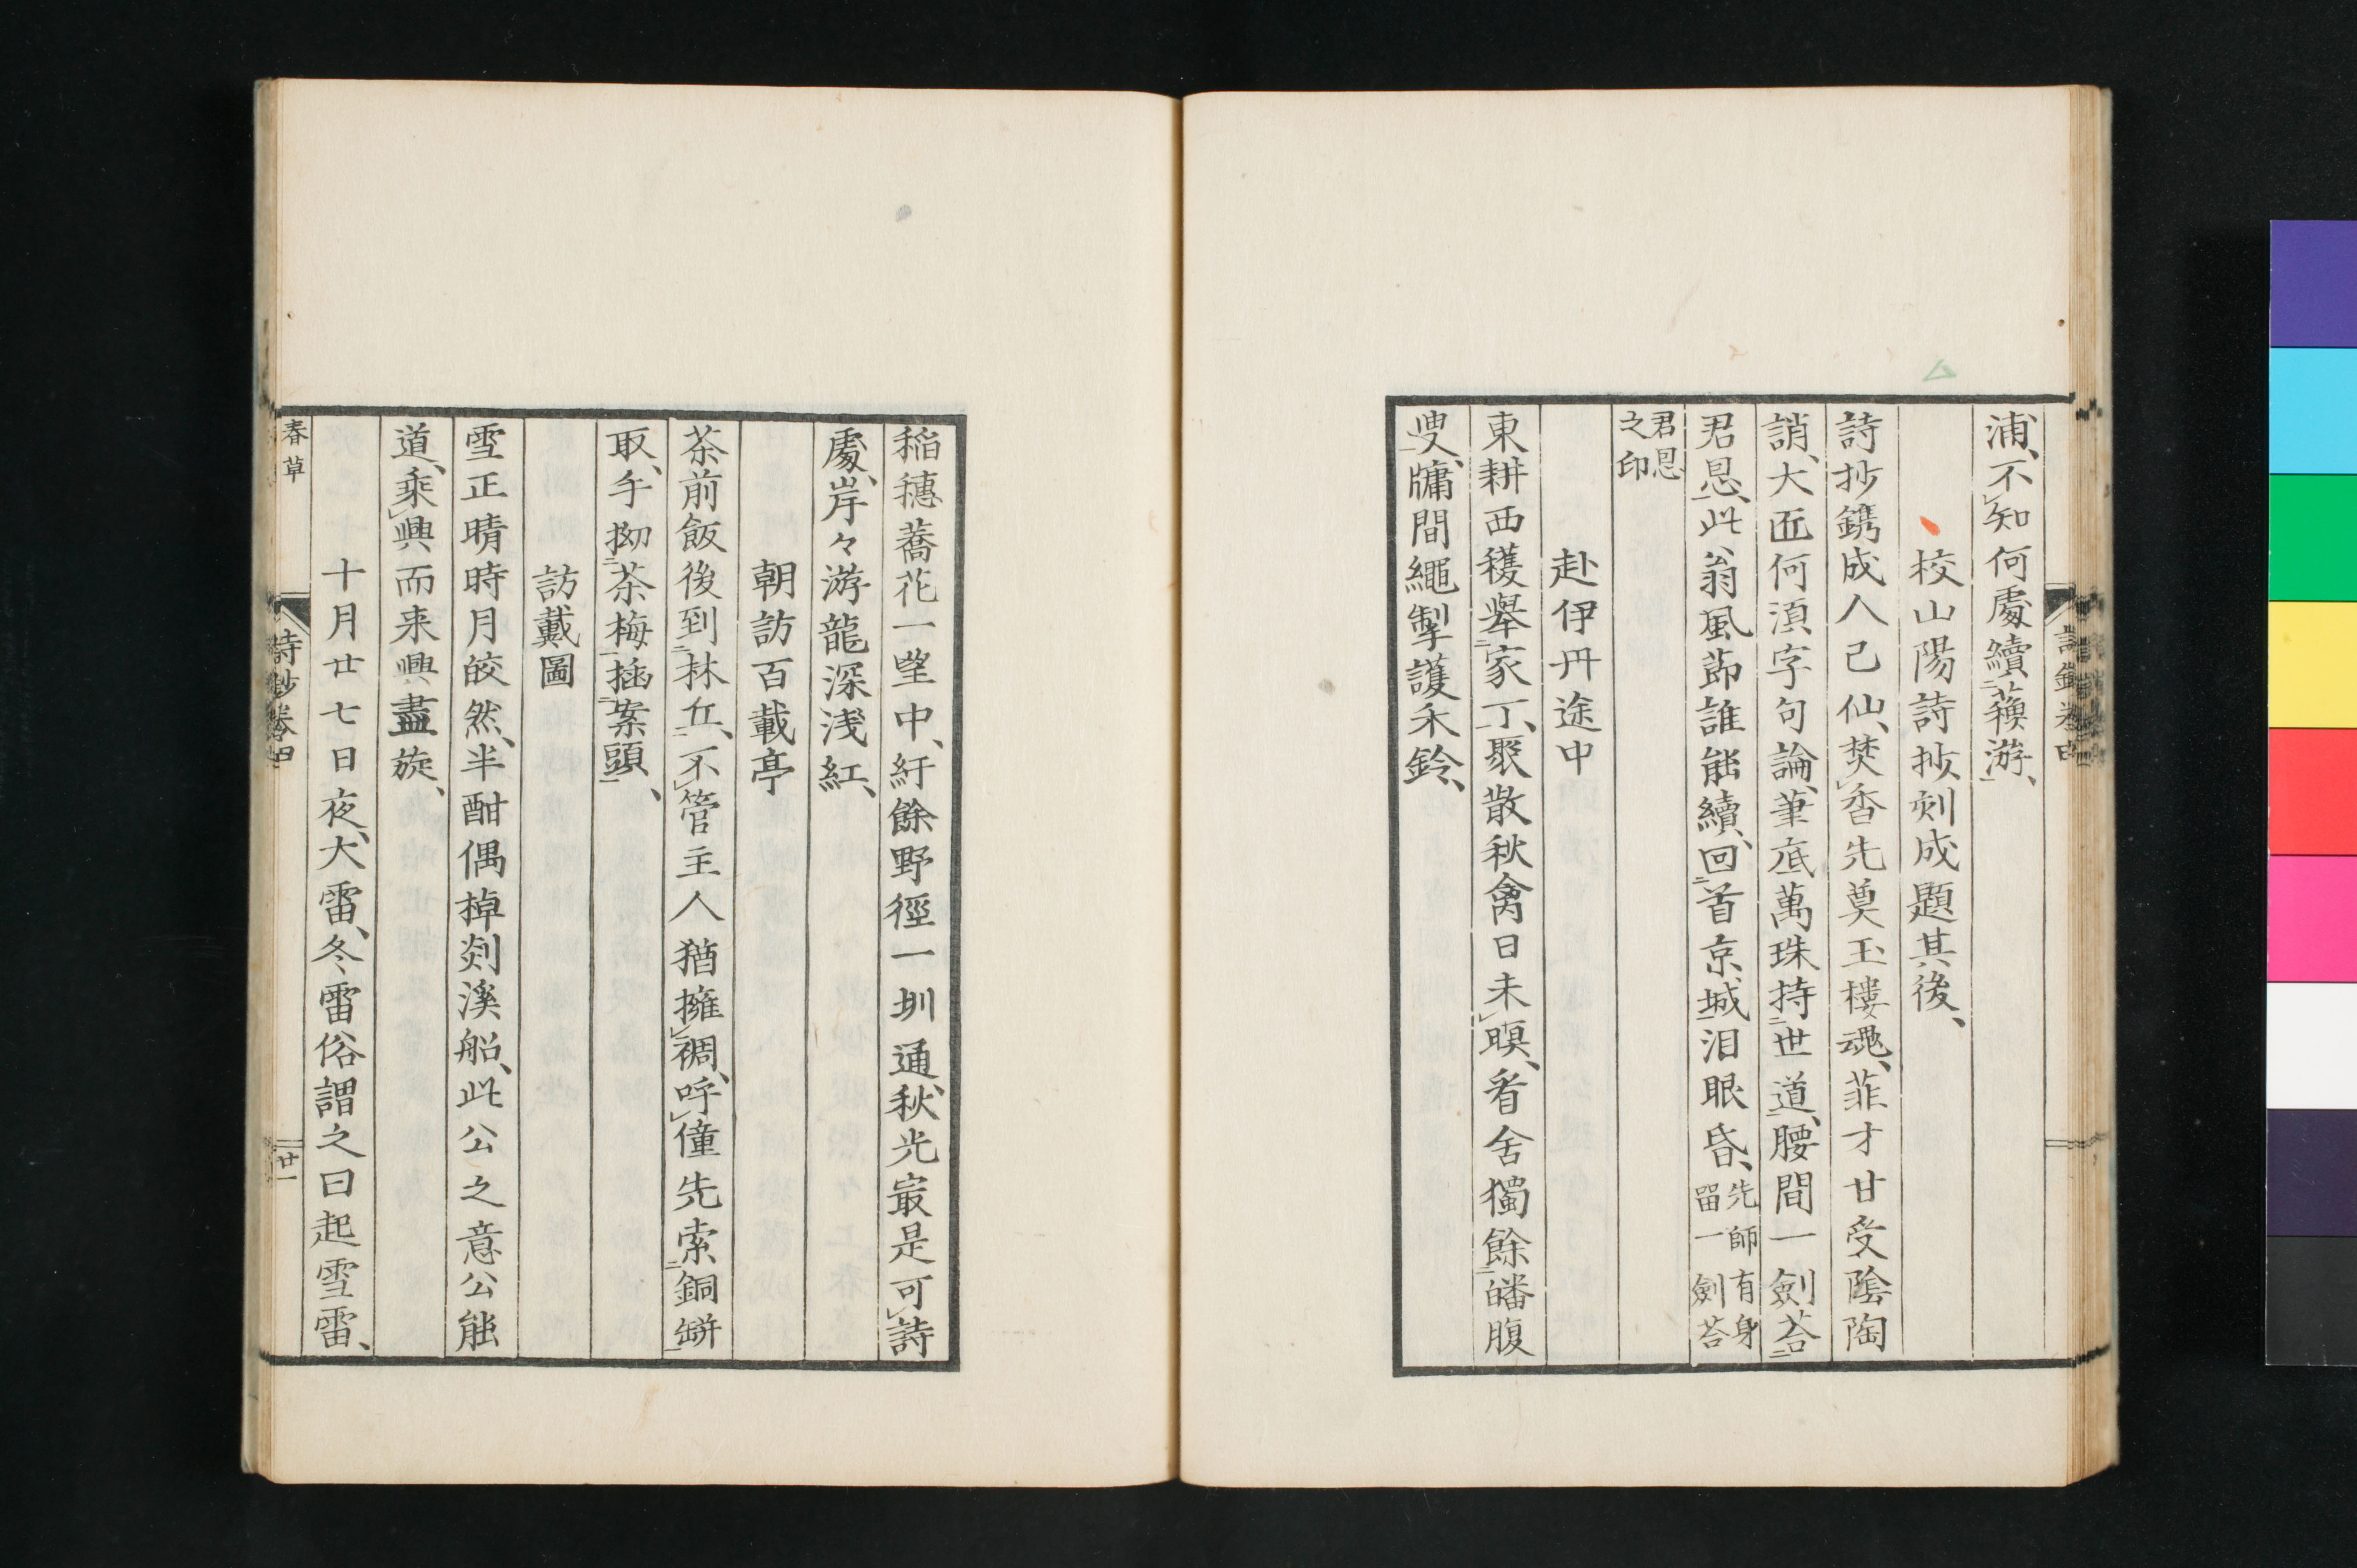 浦、不知何處續蘓游、
校山陽詩抄刻成題其後、
詩抄鐫成人已仙、焚香先奠玉樓魂、菲才甘受陰陶
誚、大匠何須字句論、筆底萬珠持世道、腰間一劍荅
君恩、此翁風節誰能續、回首京城泪眼昏、先師有身
留一劍荅
君恩
之印
赴伊丹途中
東耕西穫舉家丁、聚散秋禽日未暝、看舍獨餘皤腹
叟、牗間繩掣護禾鈴、
稲穗蕎花一望中、紆餘野徑一圳通、秋光寂是可詩
處、岸々游龍深浅紅、
朝訪百載亭
茶前飯後到林丘、不管主人猶擁裯、呼僮先索銅缾
取、手拗茶梅插案頭、
訪戴圖
雪正晴時月皎然、半酣偶棹剡溪船、此公之意公能
道、乘興而来興盡旋、
十月廿七日夜、大雷、冬雷俗謂之曰起雪雷、
春草
詩鈔卷四
廿一